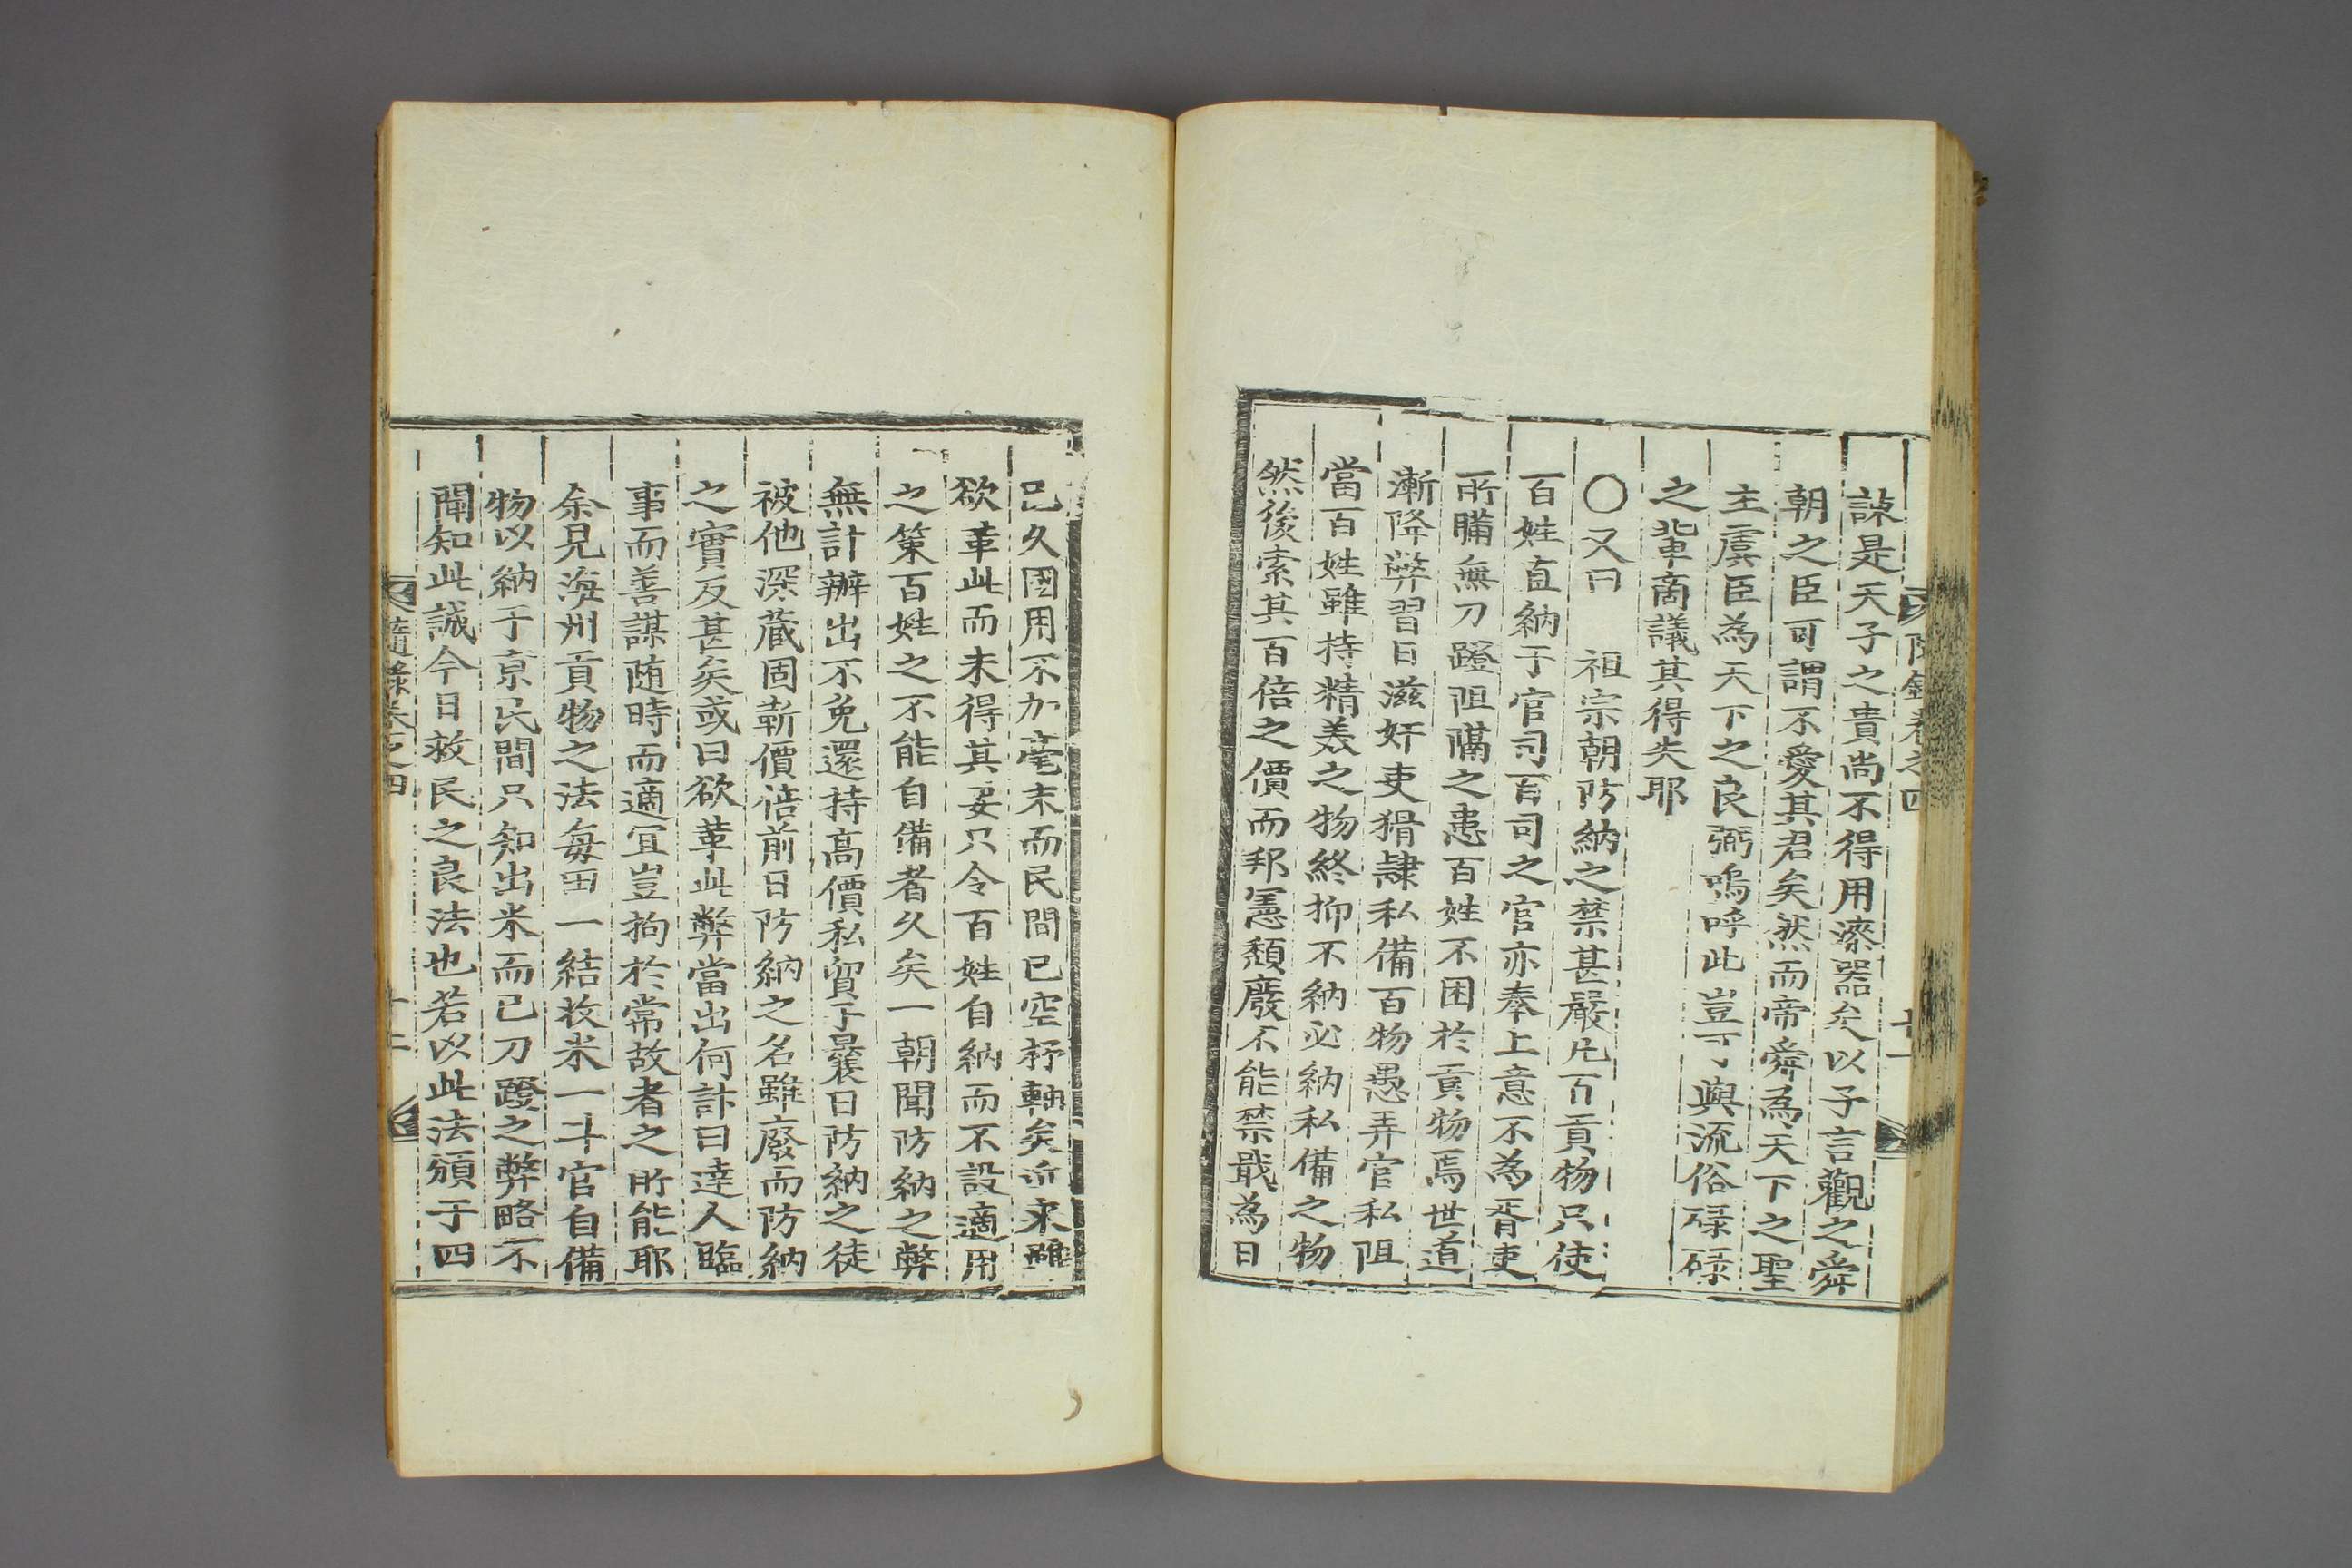 諫是天子之貴尚不得用漆器矣以子言觀之舜
朝之臣可謂不愛其君矣然而帝舜為天下之聖
主虞臣為天下之良弼嗚呼此豈可與流俗碌碌
之軰商議其得失耶
○又曰 祖宗朝防納之禁甚嚴凡百貢物只使
百姓直納于官司百司之官亦奉上意不為胥吏
所購無刀蹬阻隔之患百姓不困於貢物焉世道
漸降弊習日滋奸吏猾隷私備百物愚弄官私阻
當百姓雖持精美之物終抑不納必納私備之物
然後索其百倍之價而邦憲頹廢不能禁戢為日
已久國用不加毫末而民間已空杼軸矣近來雖
欲革此而未得其要只令百姓自納而不設適用
之策百姓之不能自備者久矣一朝聞防納之弊
無計辦出不免還持高價私貿于曩日防納之徒
被他深藏固靳價倍前日防納之名雖廢而防納
之實反甚矣或曰欲革此弊當出何計曰達人臨
事而善謀随時而適宜豈拘於常故者之所能耶
余見海州貢物之法每田一結收米一斗官自備
物以納于京民間只知出米而已刀蹬之弊略不
聞知此誠今日救民之良法也若以此法頒于四
隨錄卷之四